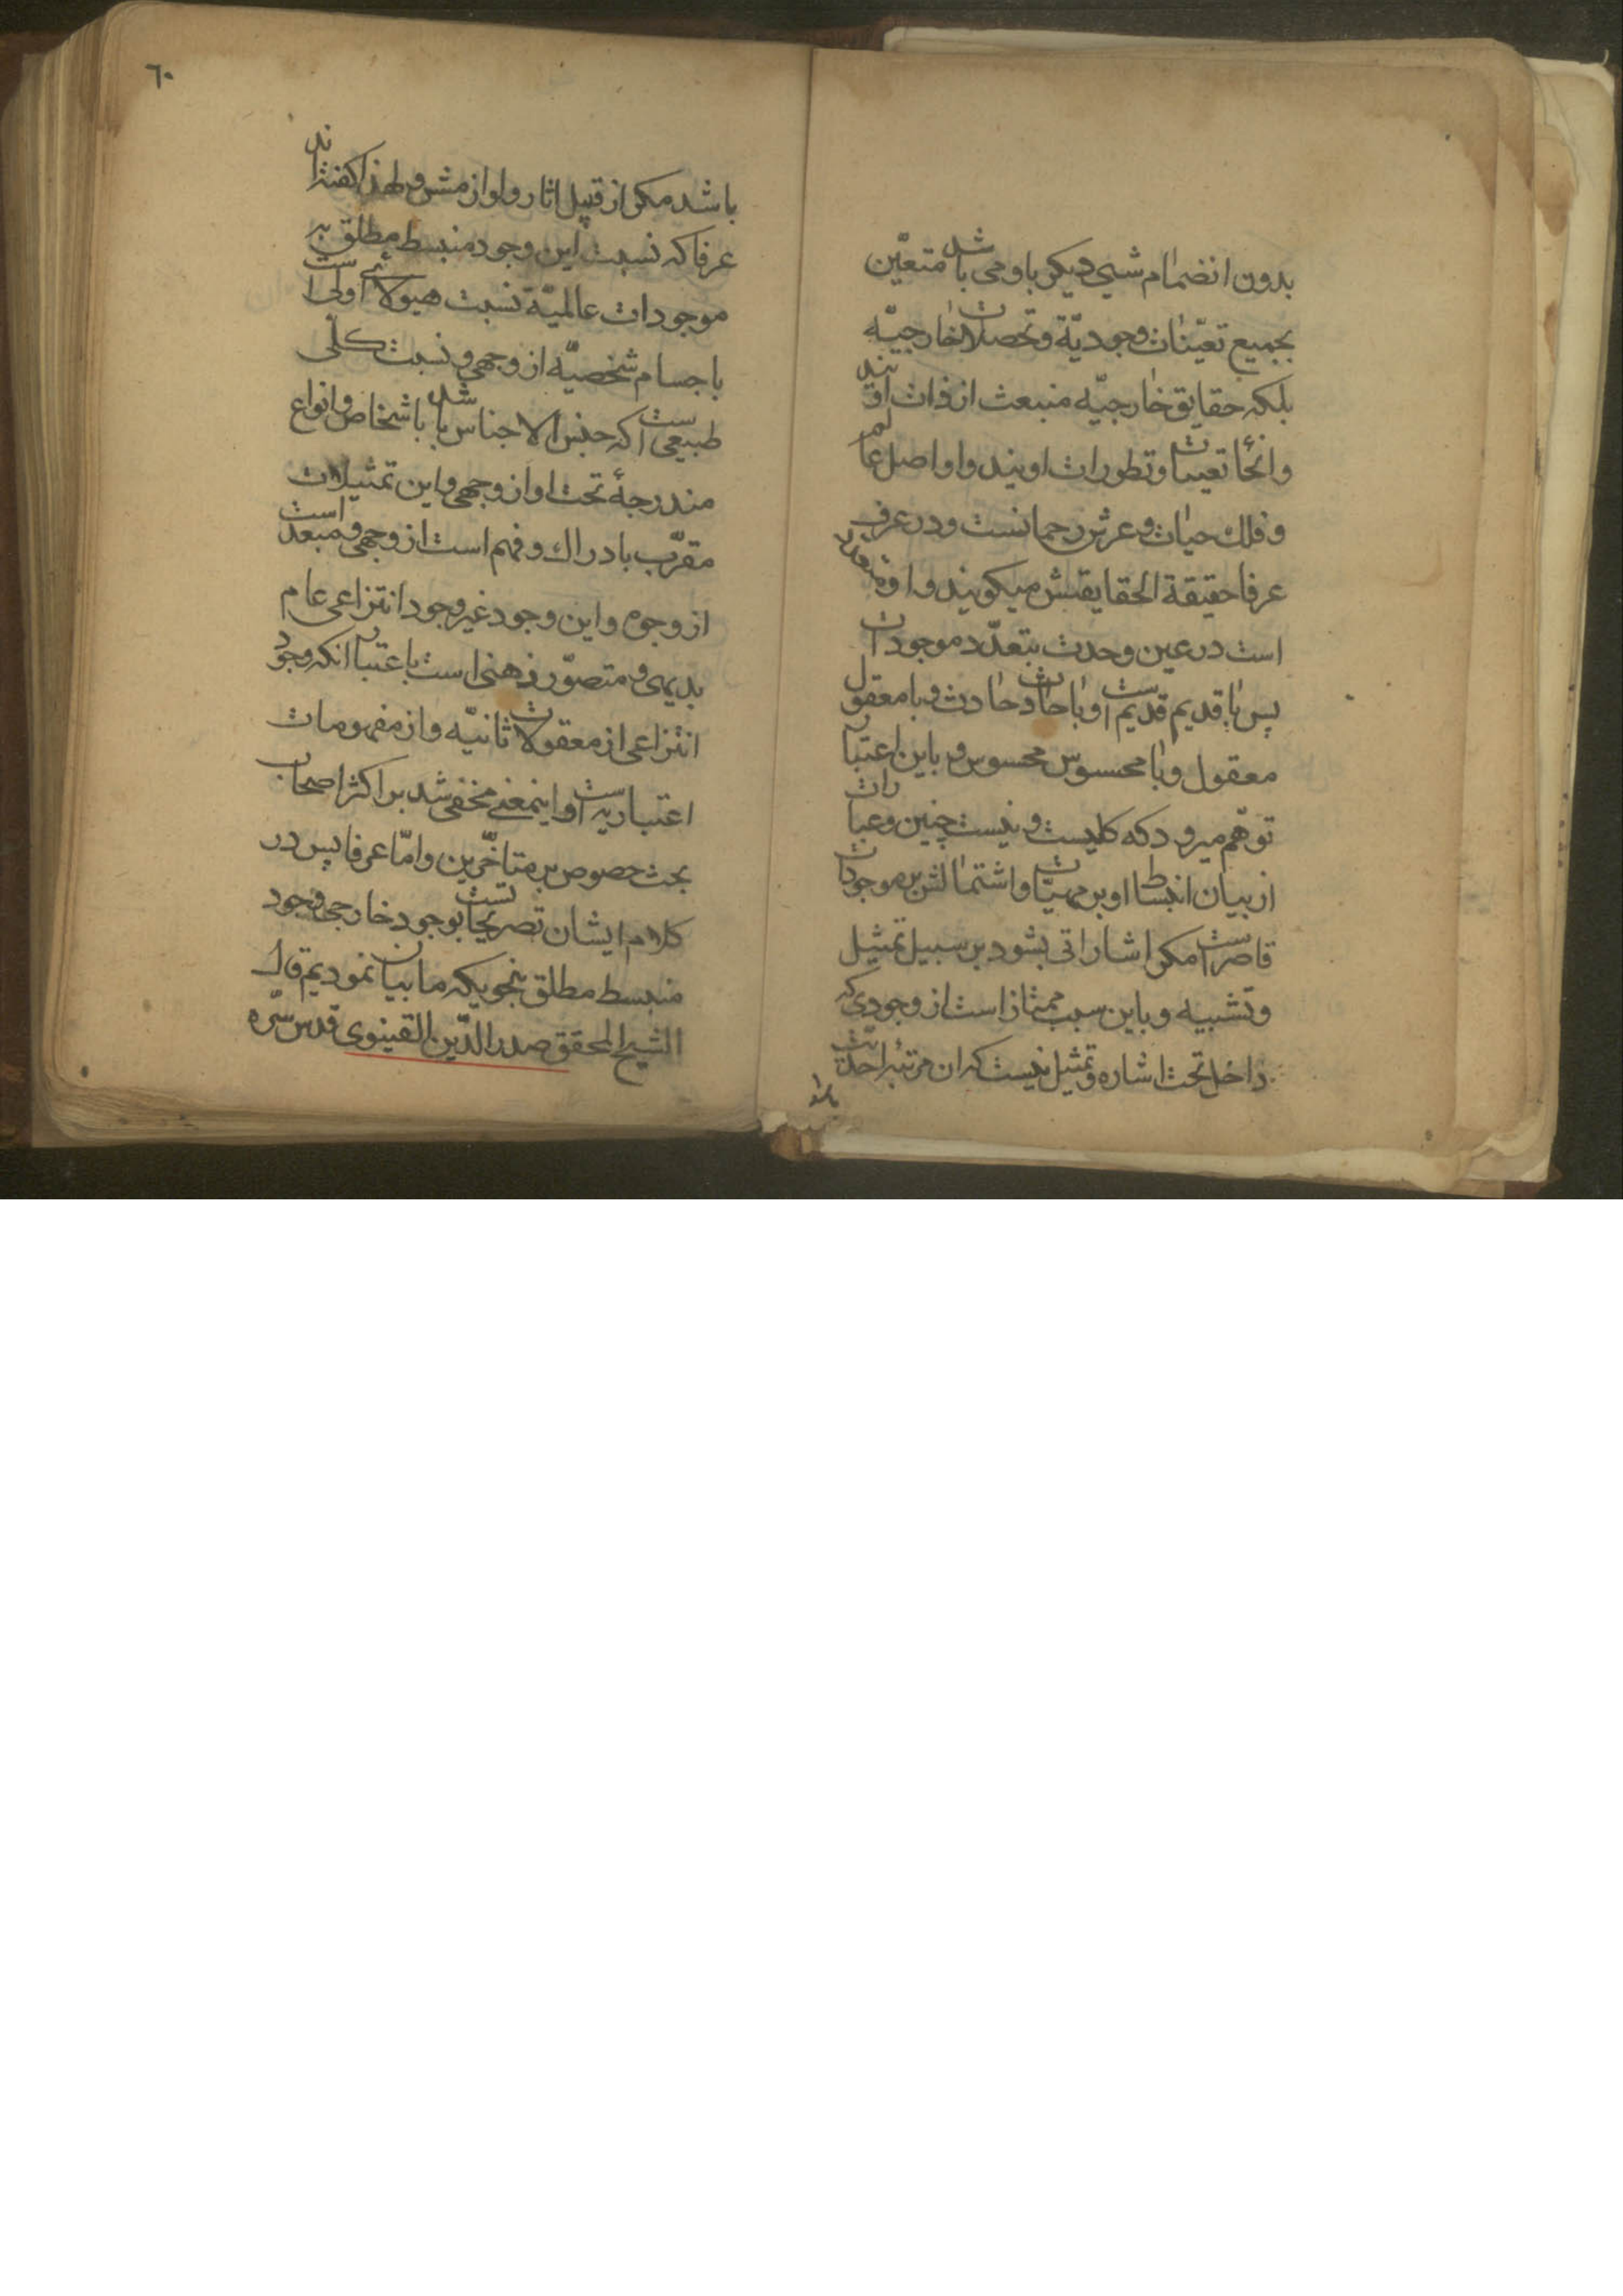 بدون انضمام شیی دیکر باو می باشد متعیّن
بجمیع تعیّنات وجودیّة و تحصلات خارجیّه
بلکه حقایق خارجیّه منبعث از ذات اویند
و انحٔا تعینات و تطورات اویند و او اصل عالم
و فلك حیات و عرش رحمانست و در عرف
عرفا حقیقة الحقایقش میکویند و او متعدد
است در عین وحدت بتعدّد موجودات
پس با قدیم قدیم است و با حادث حادث و با معقول
معقول و با محسوس محسوس و باین اعتبار
توهّم میرود که کلیست و نیست چنین و عبارات
از بیان انبساط او بر مهیّات و اشتمالش بر موجودات
قاصر است مکر اشاراتی بشود بر سبیل تمثیل
و تشبیه و باین سبب ممتاز است از وجودی که
داخل تحت اشاره و تمثیل نیست که ان مرتبه احدیّت
باشد
٦٠
باشد مکر از قبیل اثار و لوازمش و لهذا کفته‌اند
عرفا که نسبت این وجود منبسط مطلق به
موجودات عالمیّة نسبت هیولای اولی است
باجسام شخصیّه از وجهی و نسبت کلّی
طبیعی است که جنس الاجناس باشد باشخاص و انواع
مندرجهٔ تحت او از وجهی و این تمثیلات
مقرّب بادراك و فهم است از وجهی و مبعد است
از وجوه و این وجود غیر وجود انتزاعی عام
بدیهی و متصوّر ذهنی است باعتبار انکه وجود
انتزاعی از معقولات ثانیّه و از مفهومات
اعتباریه است و اینمعنی مخفی شد بر اکثر اصحاب
بحث خصوص بر متاخّرین و امّا عرفا پس در
کلام ایشان تصریحاتست بوجود خارجی وجود
منبسط مطلق بنحویکه ما بیان نمودیم قال
الشیخ المحقق صدر الدّین القینوی قدس سّره